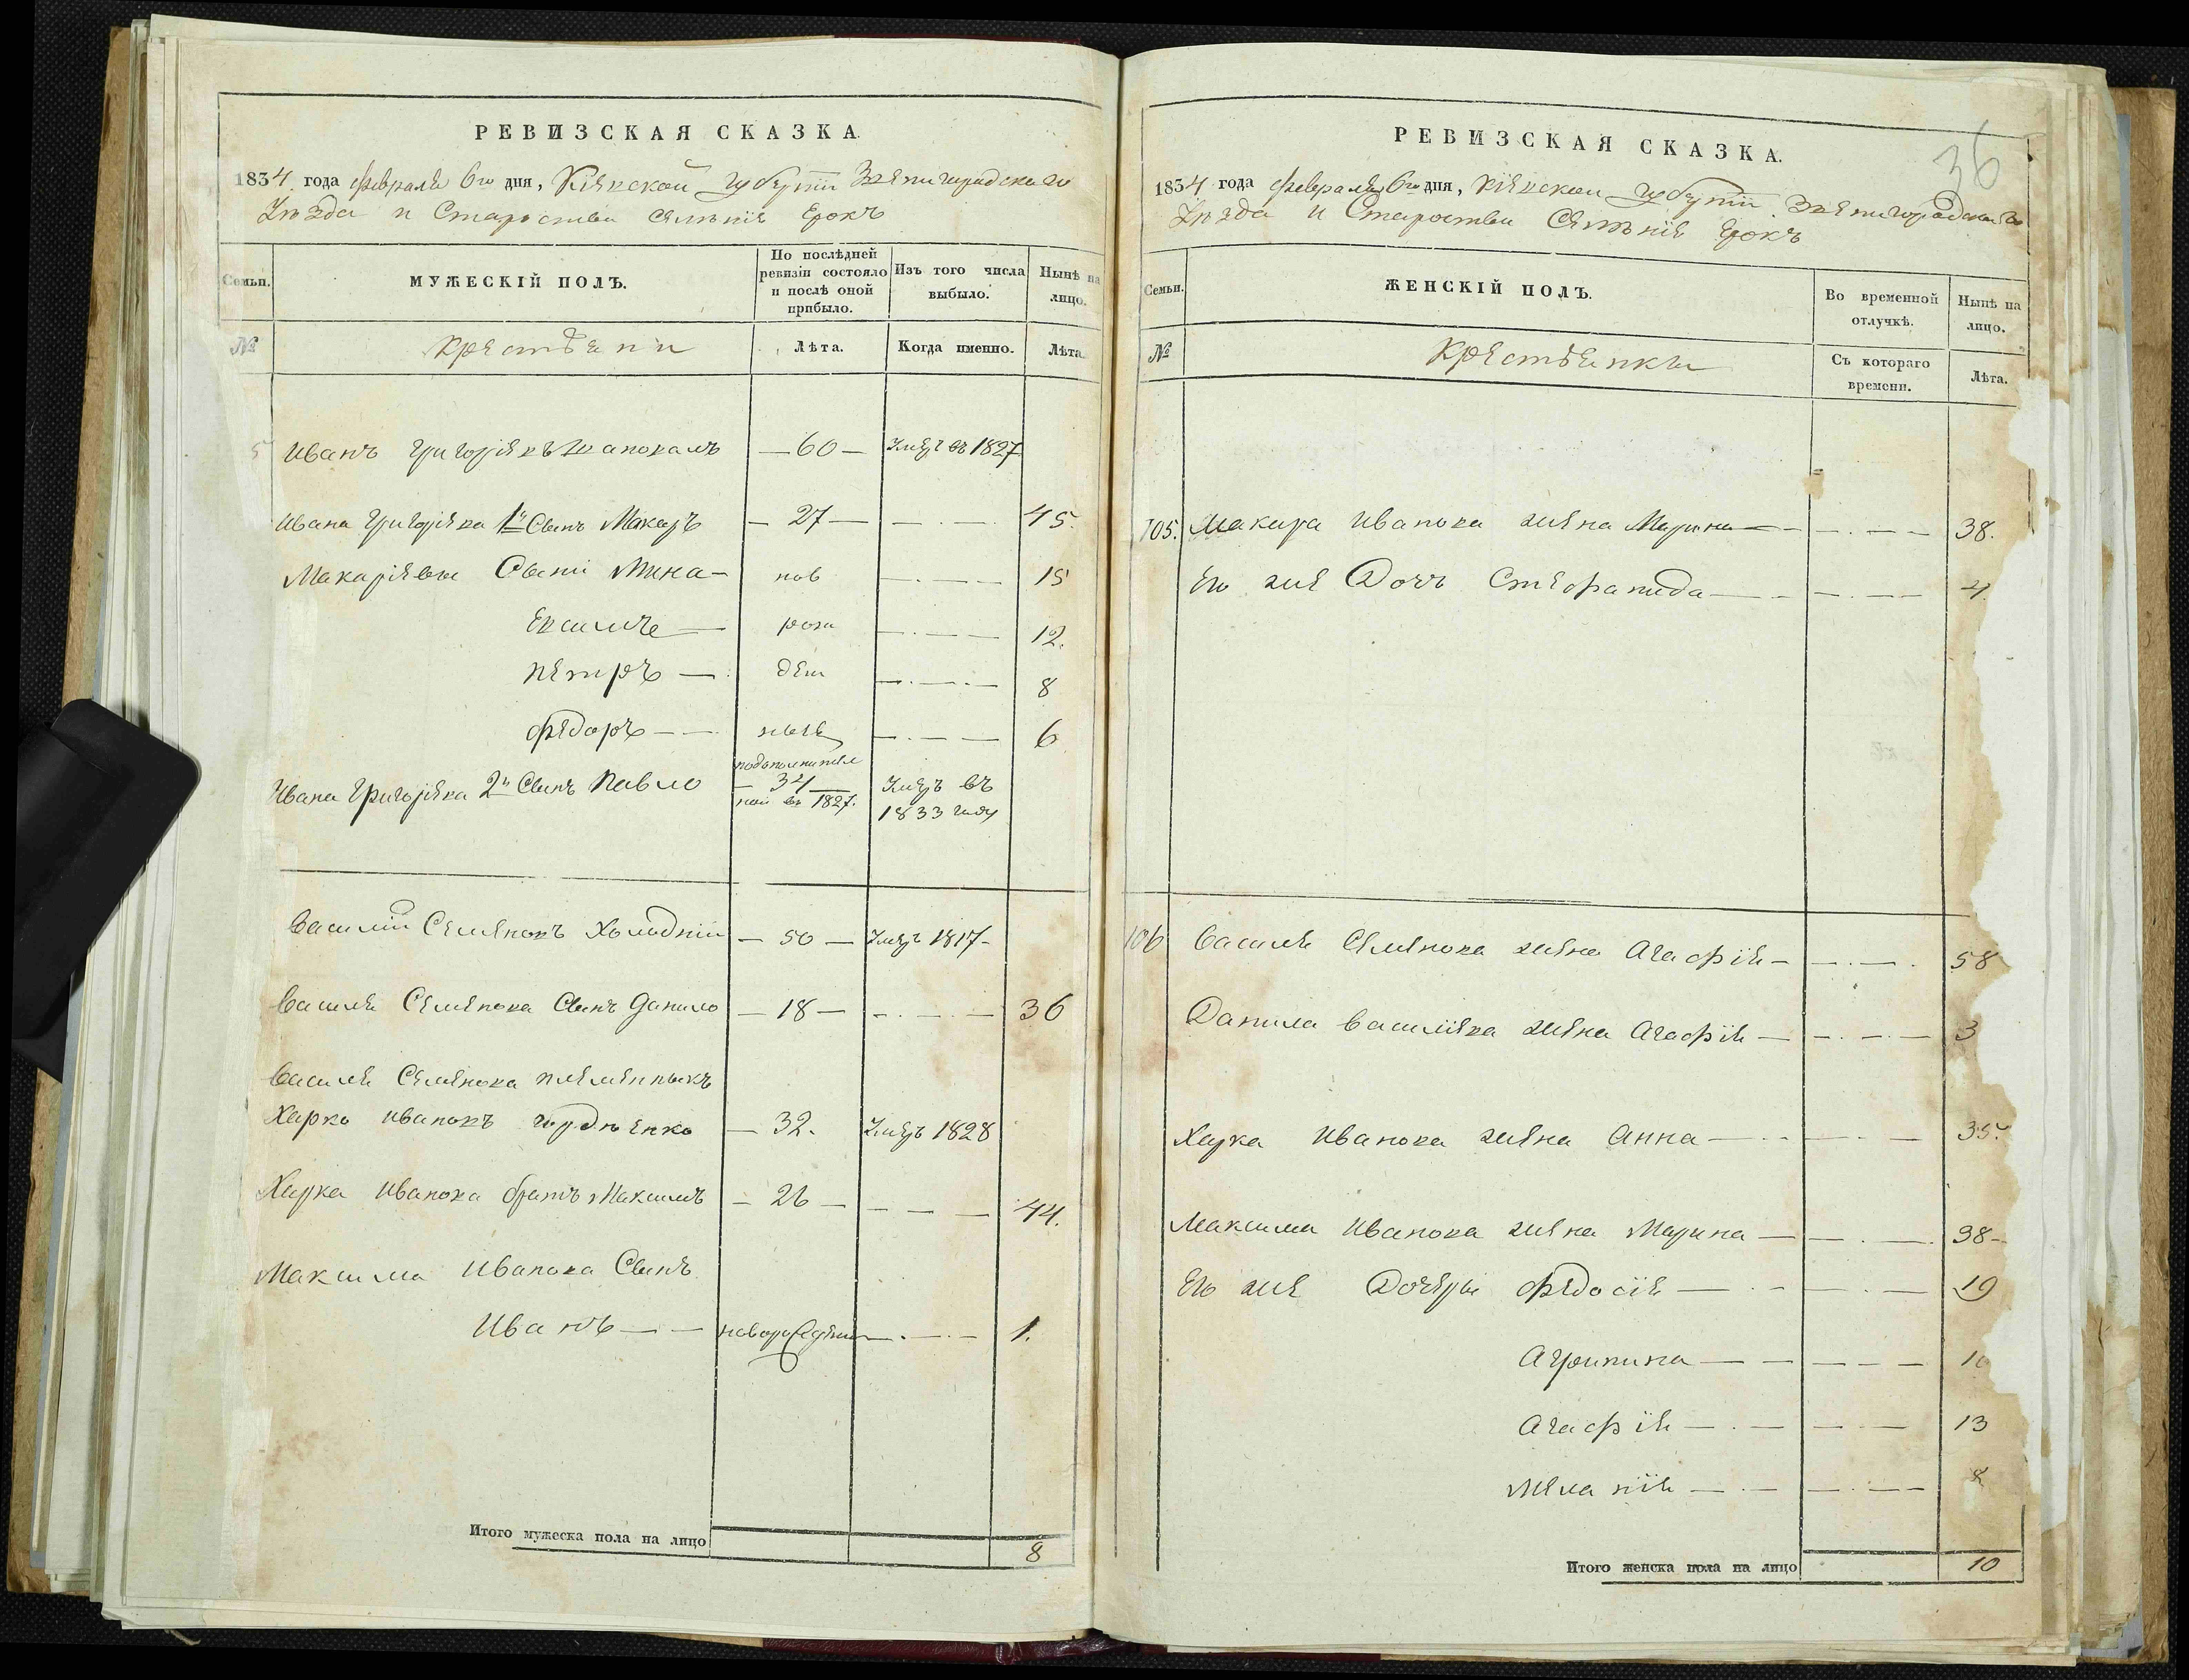 РЕВИЗСКАЯ СКАЗКА.
1834 года февраля 6го дня, Кіевской губерніи Звенигородскаго
Уѣзда и Староства Селенія Ерокъ
Семьи.
МУЖЕСКІЙ ПОЛЪ.
По послѣдней ревизіи состояло и послѣ оной прибыло.
Изъ того числа выбыло.
Нынѣ на лицо.
№
Крестьяни
Лѣта.
Когда именно.
Лѣта.
5 Иванъ Григоріевъ —60— Умеръ въ 1827
Ивана Григоріева 1й Сынъ Макаръ — 27 — 45.
Макаріевы Сыни Мина — ново 15
рож 12.
Петръ — ден 8
Федоръ — ные 6
Ивана Григоріева 2й Сынъ Павло по дополнитель — 34 — ной въ 1827. Умеръ въ 1833 году
Василій Семеновъ Холодній — 50 — Умеръ 1817 -
Василя Семенова Сынъ Данило — 18 — 36
Василя Семенова племенныкъ
Харко Ивановъ — 32. Умеръ 1828
Харка Иванова братъ Максимъ — 26 — 44.
Максима Иванова Сынъ
Иванъ — новорожденн 1.
Итого мужеска пола на лицо 8
36
РЕВИЗСКАЯ СКАЗКА.
1834 года февраля 6го дня, Кіевской губерніи Звенигородскаго
Уѣзда и Староства Селенія Ерокъ
Семьи.
ЖЕНСКІЙ ПОЛЪ.
Во временной отлучкѣ.
Нынѣ на лицо.
№
Крестьянки
Съ котораго времени.
Лѣта.
105. Макара Иванова жена Марина — 38.
Его же Дочъ Стефанида — 4.
106 Василя Семенова жена Агафія — 58
Данила Василіева жена Агафія — 3
Харка Иванова жена Анна — 35.
Максима Иванова жена Марина — 38 -
Его же Дочери Федосія — 19
Агрипина — 1
Агафія — 13
Меланія — 8
Итого женска пола на лицо 10